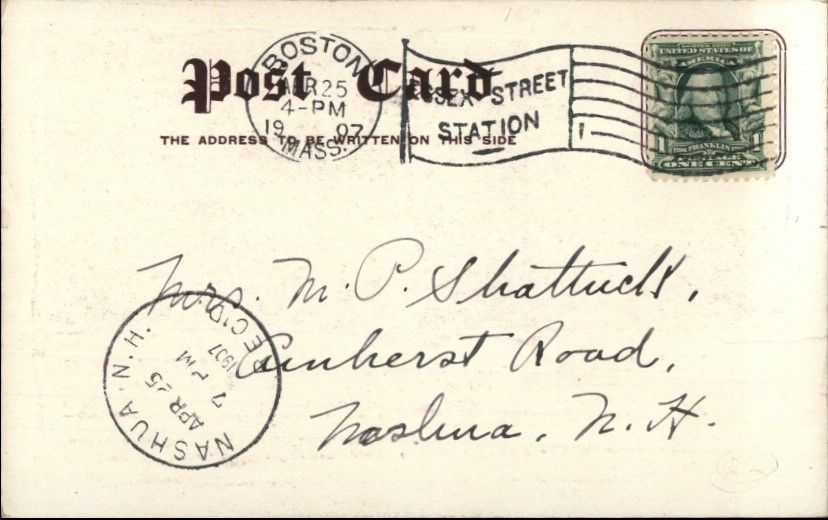 Post Card
THE ADDRESS TO BE WRITTEN ON THIS SIDE
BOSTON
APR 25
4-PM
1907
MASS.
ESSEX STREET
STATION
1
SERIES 1902
UNITED STATES OF
AMERICA
FRANKLIN
1 POSTAGE 1
ONE CENT
Mrs. M. P. Shattuck,
Amherst Road,
Nashua, N. H.
NASHUA N. H.
APR 25
7 PM
1907
REC'D